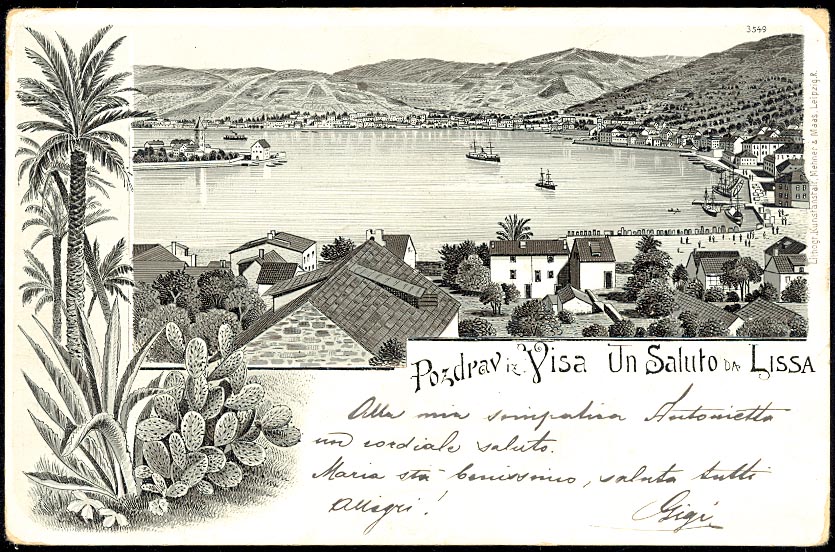 3549
Pozdrav iz Visa Un Saluto da Lissa
Alla mia simpatica Antonietta
un cordiale saluto.
Maria sta benissimo, saluta tutti
Allegri!
Gigi
Lithogr. Kunstanstalt, Mehner & Maas, Leipzig R.